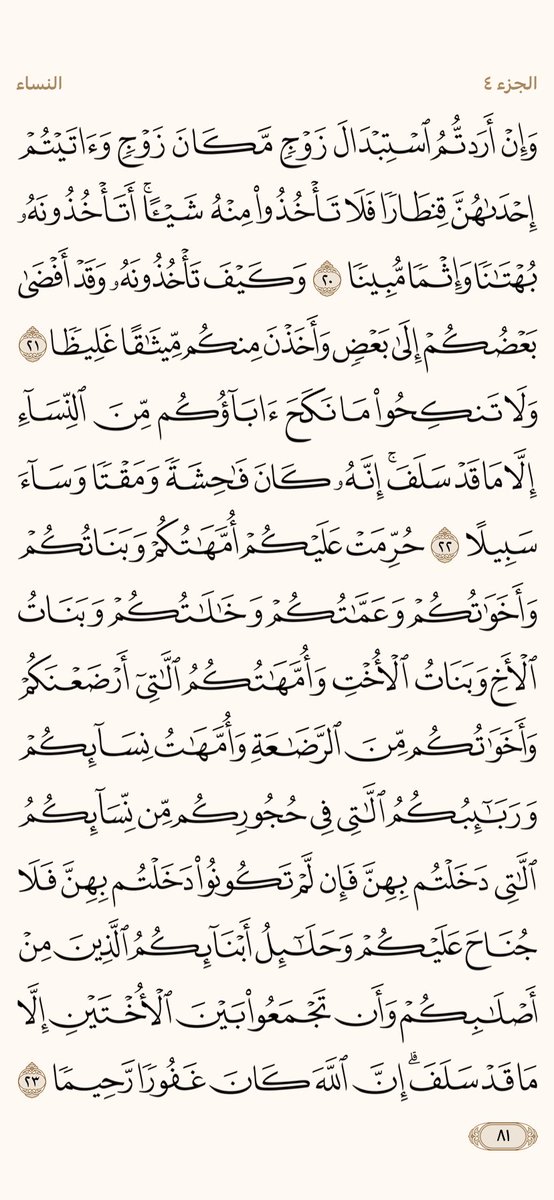 الجزء ٤
النساء
وَإِنْ أَرَدتُّمُ ٱسْتِبْدَالَ زَوْجٍ مَّكَانَ زَوْجٍ وَءَاتَيْتُمْ
إِحْدَىٰهُنَّ قِنطَارًا فَلَا تَأْخُذُوا۟ مِنْهُ شَيْـًٔا ۚ أَتَأْخُذُونَهُۥ
بُهْتَٰنًا وَإِثْمًا مُّبِينًا ٢٠ وَكَيْفَ تَأْخُذُونَهُۥ وَقَدْ أَفْضَىٰ
بَعْضُكُمْ إِلَىٰ بَعْضٍ وَأَخَذْنَ مِنكُم مِّيثَٰقًا غَلِيظًا ٢١
وَلَا تَنكِحُوا۟ مَا نَكَحَ ءَابَآؤُكُم مِّنَ ٱلنِّسَآءِ
إِلَّا مَا قَدْ سَلَفَ ۚ إِنَّهُۥ كَانَ فَٰحِشَةً وَمَقْتًا وَسَآءَ
سَبِيلًا ٢٢ حُرِّمَتْ عَلَيْكُمْ أُمَّهَٰتُكُمْ وَبَنَاتُكُمْ
وَأَخَوَٰتُكُمْ وَعَمَّٰتُكُمْ وَخَٰلَٰتُكُمْ وَبَنَاتُ
ٱلْأَخِ وَبَنَاتُ ٱلْأُخْتِ وَأُمَّهَٰتُكُمُ ٱلَّٰتِىٓ أَرْضَعْنَكُمْ
وَأَخَوَٰتُكُم مِّنَ ٱلرَّضَٰعَةِ وَأُمَّهَٰتُ نِسَآئِكُمْ
وَرَبَٰٓئِبُكُمُ ٱلَّٰتِى فِى حُجُورِكُم مِّن نِّسَآئِكُمُ
ٱلَّٰتِى دَخَلْتُم بِهِنَّ فَإِن لَّمْ تَكُونُوا۟ دَخَلْتُم بِهِنَّ فَلَا
جُنَاحَ عَلَيْكُمْ وَحَلَٰٓئِلُ أَبْنَآئِكُمُ ٱلَّذِينَ مِنْ
أَصْلَٰبِكُمْ وَأَن تَجْمَعُوا۟ بَيْنَ ٱلْأُخْتَيْنِ إِلَّا
مَا قَدْ سَلَفَ ۗ إِنَّ ٱللَّهَ كَانَ غَفُورًا رَّحِيمًا ٢٣
٨١